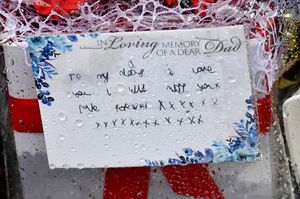 IN Loving MEMORY
OF A DEAR Dad
To my daddy I love
you I will miss you x
forever xxxxxx
xxxxxxxxxxx